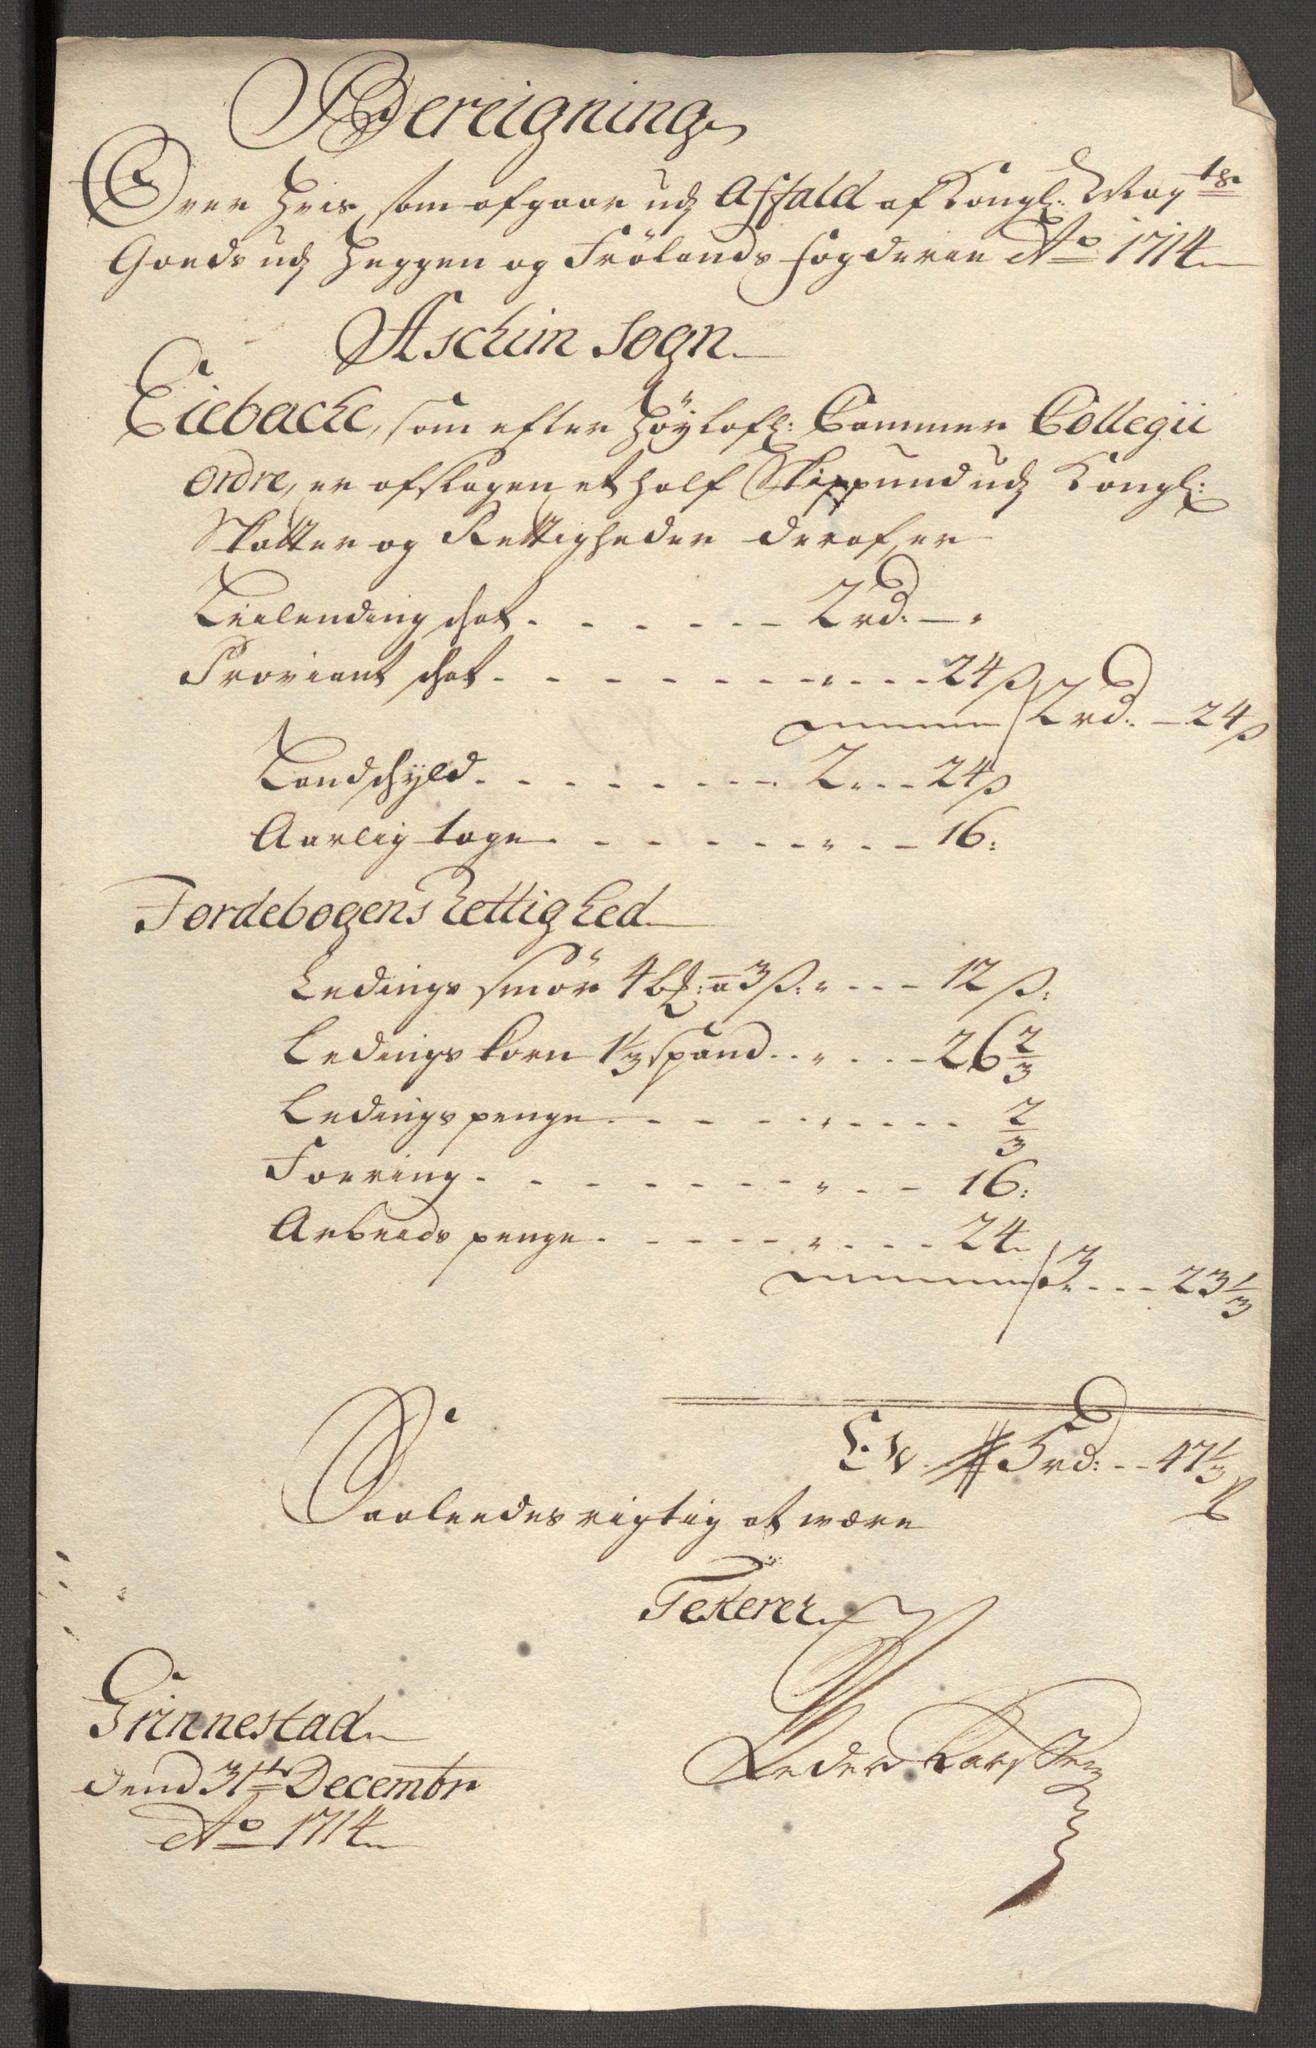 Bereigning
Over hvis som afgaar udj Affald af Kongl: May.ts
Goeds udj Heggen og Frølands fogderie A.o 1714
Aschim Sogn
Eiebache, som efter Höylofl: Cammer Collegii
Ordre, er afslagen et half Skippund udj Kongl:
Skatter og Rettigheder deraf er
Leilending schat . . . . . . 2 rd: — „
Proviant schat . . . . . . „ . . . 24 ß 2 rd: — 24 ß
Landschyld . . . . . . . 2 „ . . 24 ß
Aarlig tage . . . . . . „ . . 16:
Jordebogens Rettighed
Ledings smör 4 b℔: a 3 ß: „ . . . 12 ß:
Ledings korn 1⅓ spand . . „ . . . 26 2/3
Ledings penge . . . . . „ . . . . 2/3
Foering . . . . . . . „ . . 16:
Arbeids penge . . . . . „ . . . 24 3 „ . . . 23 1/3
Er 5 rd: . . 47 1/3 ß
Saaledes rigtig at være
Testerer
Grinnestad
dend 31te Decembr
A.o 1714
Peder Karsten